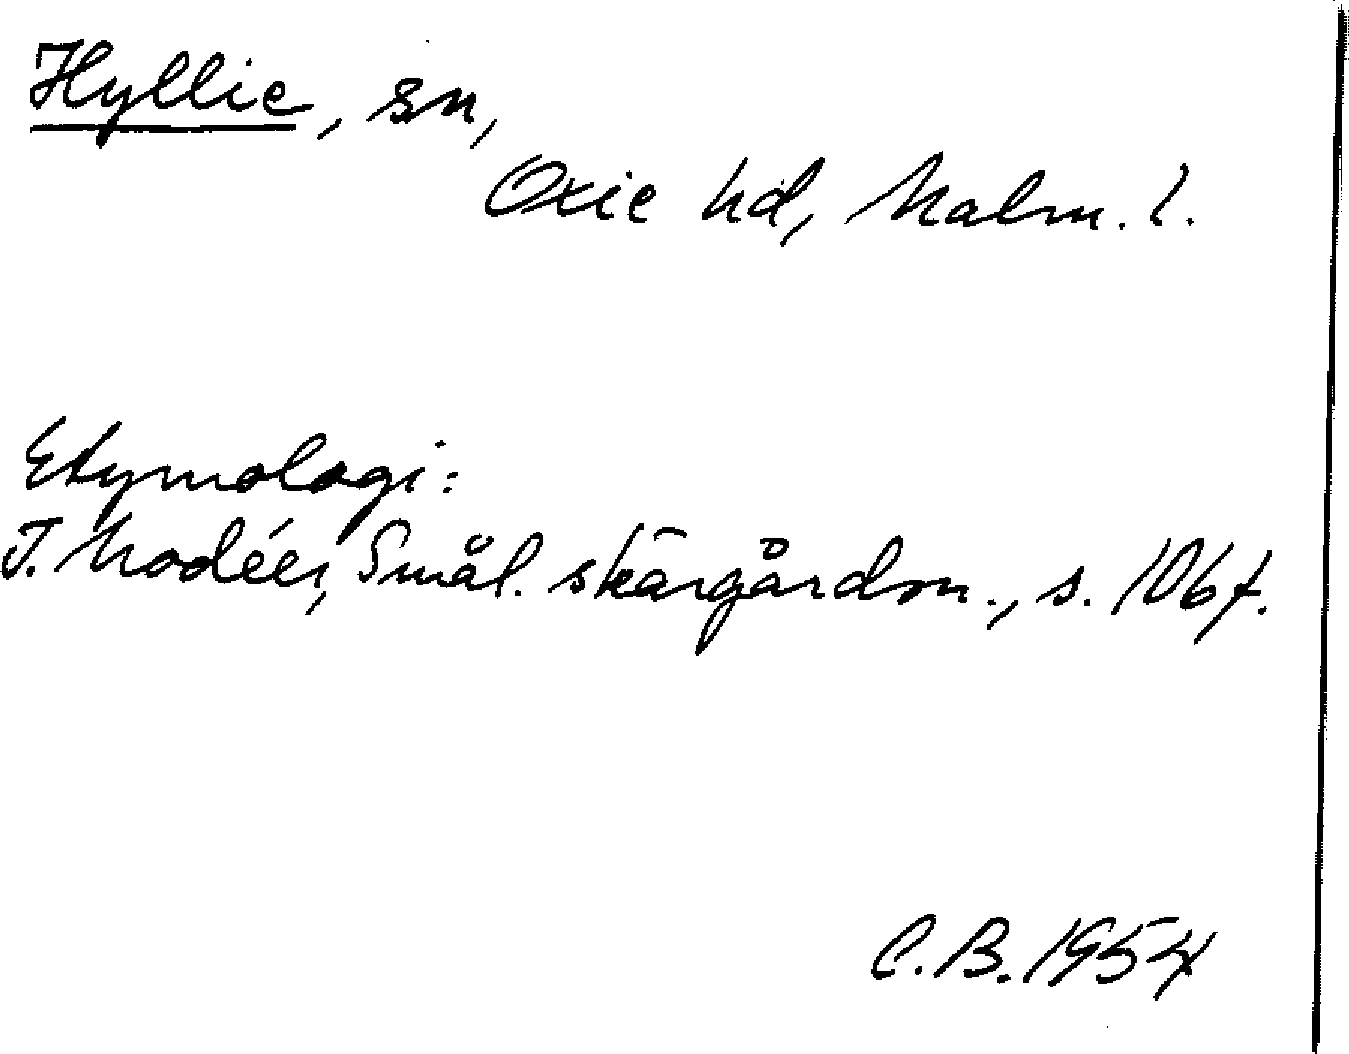 Hyllie, sn,
Oxie hd, Malm. l.
Etymologi:
I. Modéer, Smål. skärgårdsn., s. 106f.
C.B. 1954